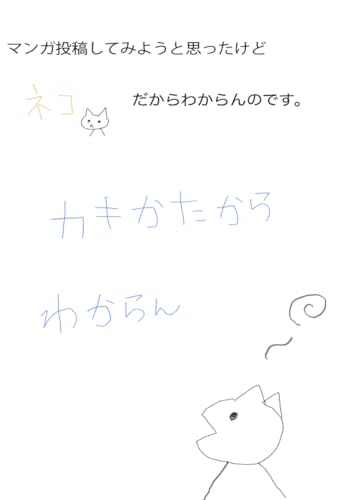 マンガ投稿してみようと思ったけど
ネコ だからわからんのです。
カキかたから
わからん